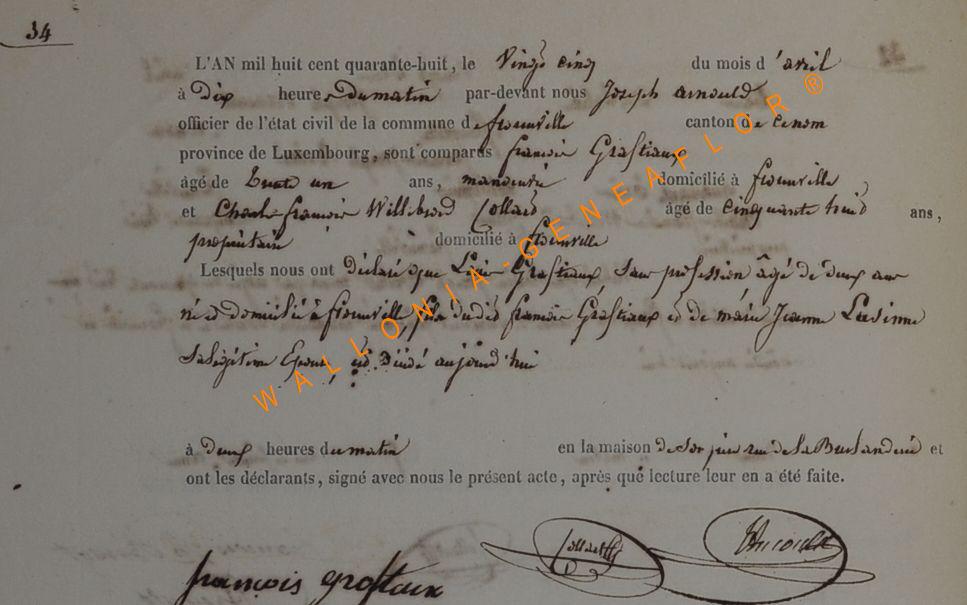 34
L'AN mil huit cent quarante-huit, le Vingt cinq du mois d'avril
à Dix heures du matin par-devant nous Joseph arnould
officier de l'état civil de la commune de canton de
province de Luxembourg, sont comparus françois Grastiaux
âgé de trente un ans, domicilié à
et Charle françois Willibrord Collard âgé de cinquante huit ans,
propriétaire domicilié à
Lesquels nous ont déclaré que Grastiaux, sans profession âgé de deux ans
né et domicilié à fils dudit françois Grastiaux et de marie Jeanne
sa légitime Epouse, est décédé aujourd'hui
à deux heures du matin en la maison de son père rue de la et
ont les déclarants, signé avec nous le présent acte, après que lecture leur en a été faite.
françois grastiaux Collard Arnould
WALLONIA-GENEAFLOR®